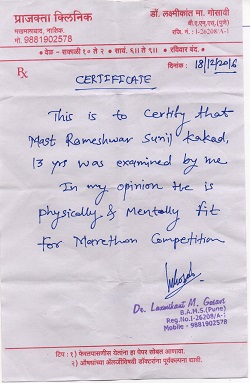 प्राजक्ता क्लिनिक
मखमलाबाद, नाशिक.
मो. 9881902578
डॉ. लक्ष्मीकांत मा. गोसावी
बी.ए.एम.एस.(पुणे)
रजि. नं. : I-26208/A-1
• वेळ - सकाळी १० ते २ • सायं. ६॥ ते ९॥ • रविवार बंद. •
Rx
दिनांक : 18/12/2016
CERTIFICATE
This is to certify that
Mast Rameshwar Sunil Kakad,
13 yrs was examined by me
In my opinion He is
physically & Mentally fit
for Marrethon Competition
Dr. Laxmikant M. Gosavi
B.A.M.S.(Pune)
Reg.No.I-26208/A-1
Mobile - 9881902578
टिप : १) फेरतपासणीस येतांना हा पेपर सोबत आणावा.
२) औषधांच्या अ‍ॅलर्जीविषयी डॉक्टरांना पूर्वकल्पना द्यावी.